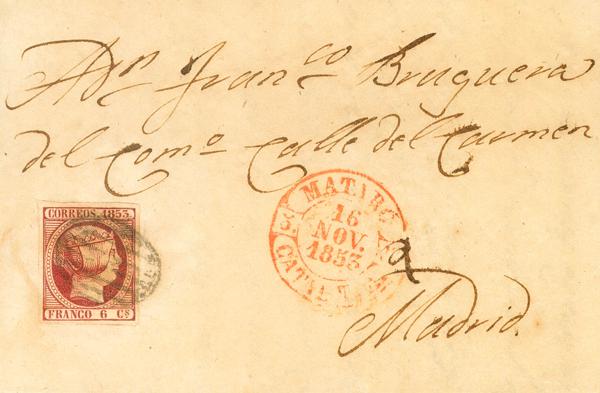 A Dn Franco Bruguera
del Como Calle del Carmen
CORREOS. 1853
FRANCO 6 Cs
MATARÓ
16
NOV.
1853
Madrid.